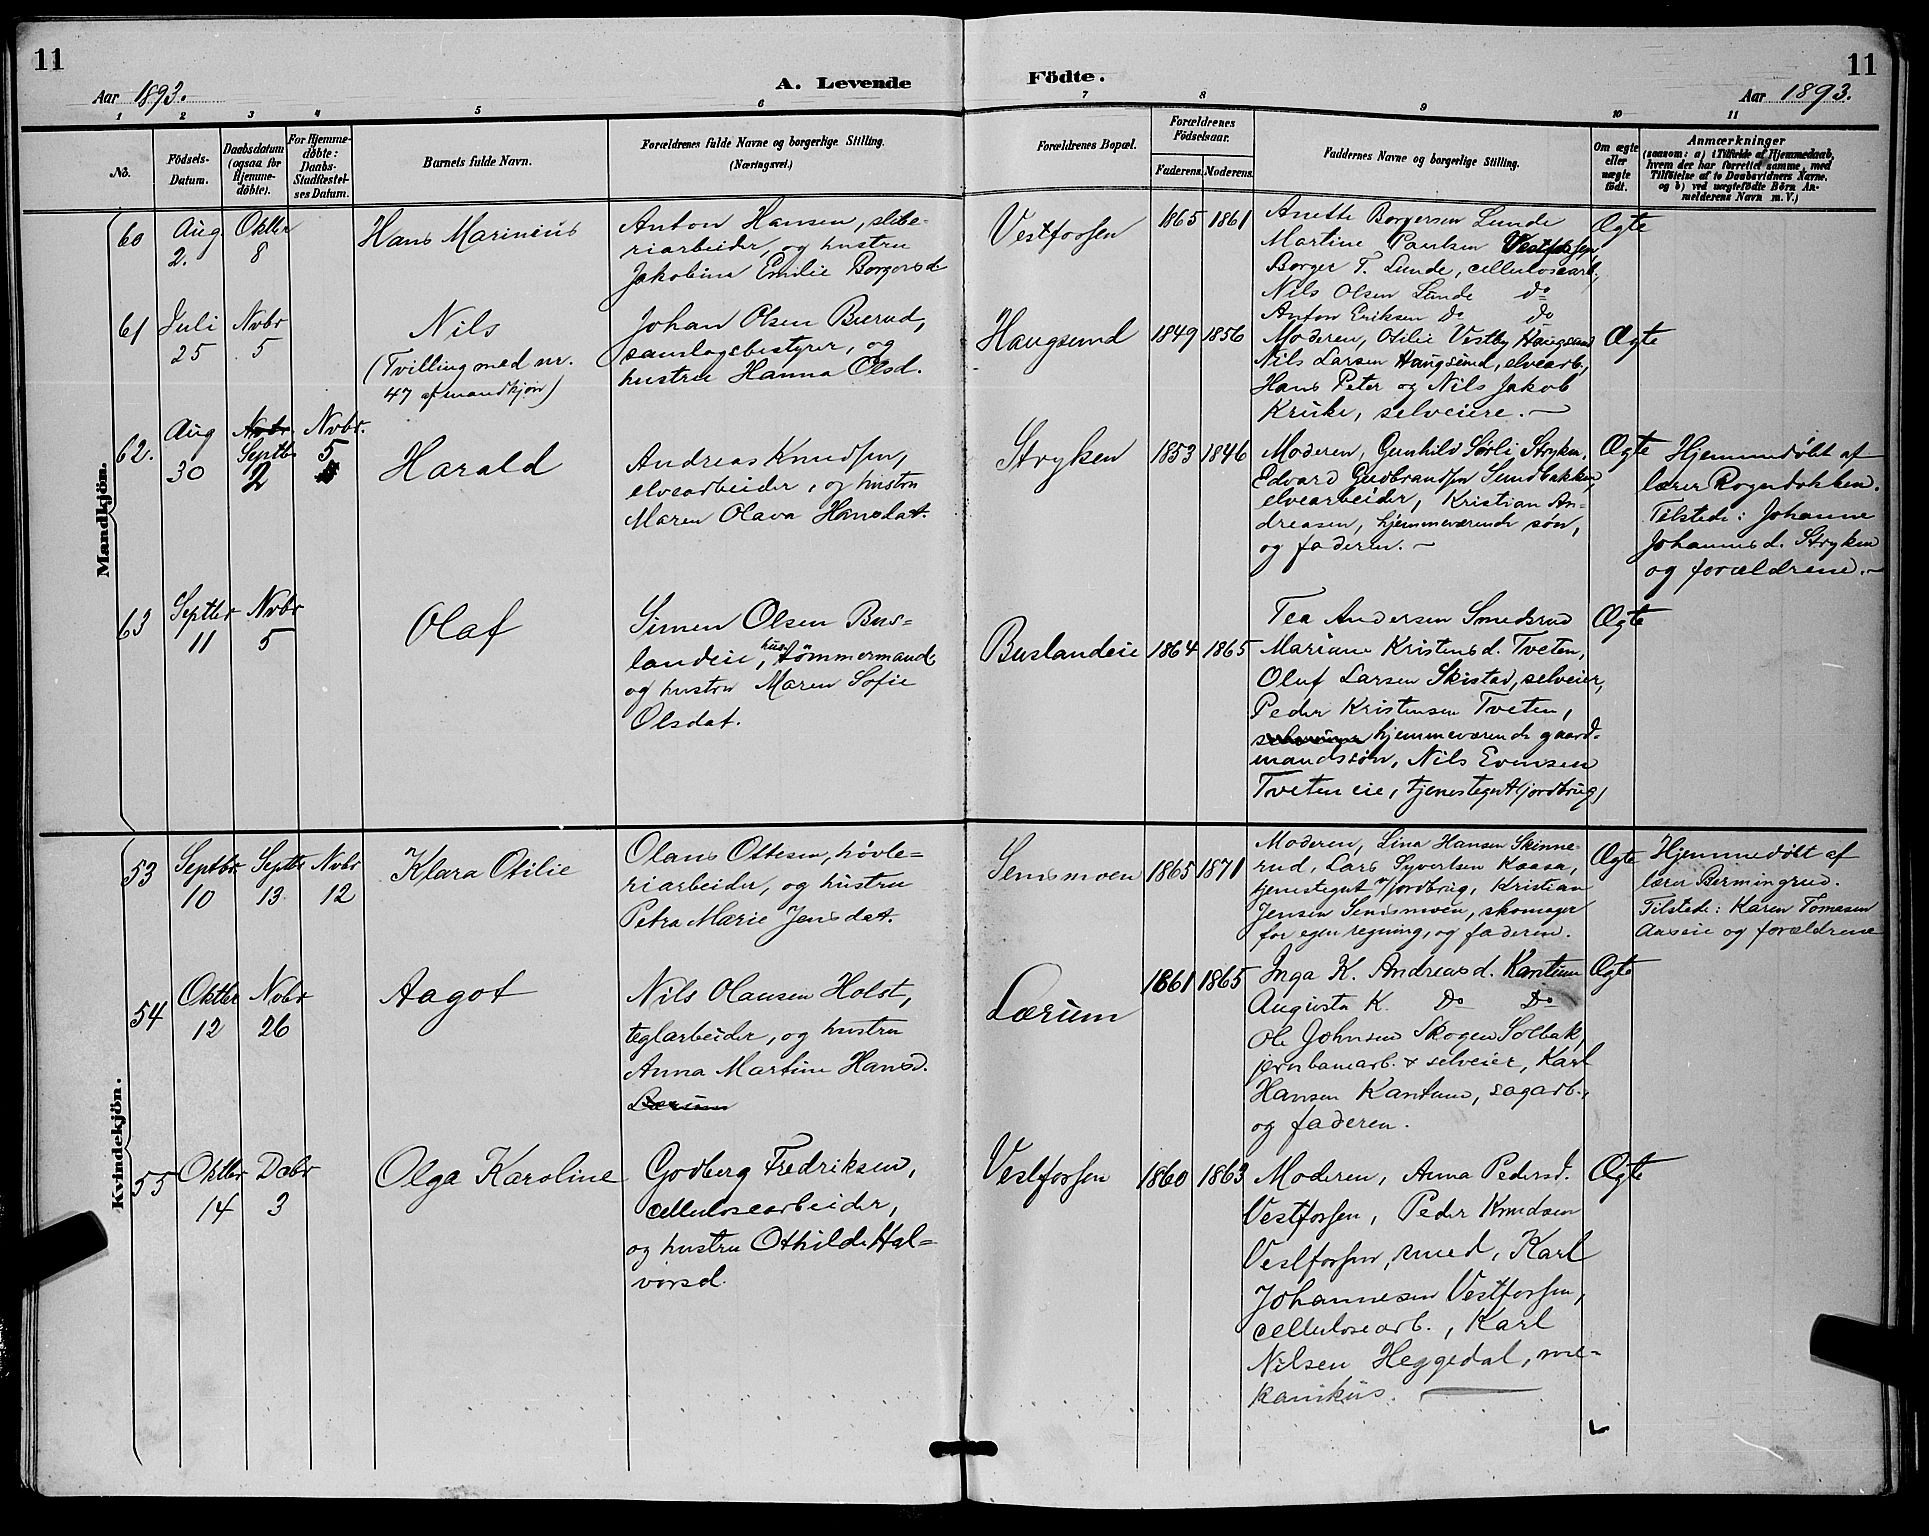 11
A. Levende Födte.
11
Aar 1893.
Aar 1893.
1 2 3 4 5 6 7 8 9 10 11
No.
Födsels-
Datum.
Daabsdatum
(ogsaa for
Hjemme-
döbte).
For Hjemme-
döbte:
Daabs-
Stadfæstel-
ses Datum.
Barnets fulde Navn.
Forældrenes fulde Navne og borgerlige Stilling.
(Næringsvei.)
Forældrenes Bopæl.
Forældrenes
Födselsaar.
Faderens. Moderens.
Faddernes Navne og borgerlige Stilling.
Om ægte
eller
uægte
födt.
Anmærkninger
(saasom: a) i Tilfælde af Hjemmedaab,
hvem der har forrettet samme, med
Tilföielse af to Daabsvidners Navne.
og b) ved uægtefödte Börn An-
melderens Navn m. V.)
Mandkjön.
60
Aug
2.
Oktbr
8
Hans Marinius
Anton Hansen, slibe-
riarbeider, og hustru
Jakobina Emilie Borgersd
Vestfossen
1865 1861
Anette Borgersen Lunde
Martine Paulsen Vestfossen,
Borger T. Lunde, cellulosearb.,
Nils Olsen Lunde do
Anton Eriksen do do
Ægte
61
Juli
25
Nvbr
5
Nils
(Tvilling med nr.
47 af mandkjøn)
Johan Olsen Burud,
samlagsbestyrer, og
hustru Hanna Olsd.
Haugsund
1849 1856
Moderen, Otilie Vestby Haugsund
Nils Larsen Haugsund, elvearb.,
Hans Peter og Nils Jakob
Kruke, selveiere. —
Ægte
62.
Aug
30
Nvbr
Septbr
2
Nvbr.
5
Harald
Andreas Knudsen,
elvearbeider, og hustru
Maren Olava Hansdat.
Stryken
1853 1846
Moderen, Gunhild Sørli Stryken,
Edvard Gudbrandsen Sundbakken,
elvearbeider, Kristian An-
dreasen, hjemmeværende søn,
og faderen. —
Ægte
Hjemmedøbt af
lærer Rogndokken.
Tilstede: Johanne
Johannesd. Stryken
og forældrene. —
63
Septbr
11
Nvbr
5
Olaf
Simen Olsen Bus-
landeie, hus tömmermand
og hustru Maren Sofie
Olsdat.
Buslandeie
1864 1865
Tea Andersen Smedsrud
Mariane Kristensd. Tveten,
Oluf Larsen Skistad, selveier,
Peder Kristensen Tveten,
hjemmeværende gaard-
mandssøn, Nils Evensen
Tveteneie, tjenestegut (jordbrug)
Ægte
Kvindekjön.
53
Septbr.
10
Septbr
13
Nvbr
12
Klara Otilie
Olaus Ottesen, høvle-
riarbeider, og hustru
Petra Marie Jensdat.
Semsmoen
1865 1871
Moderen, Lina Hansen Skinne-
rud, Lars Syvertsen Kaasa,
tjenestegut v/jordbrug, Kristian
Jensen Semsmoen, skomager
for egen regning, og faderen.
Ægte
Hjemmedøbt af
lærer Bermingrud.
Tilstede: Karen Tomasen
Aaseie og forældrene
54
Oktbr
12
Nvbr
26
Aagot
Nils Olausen Holst,
teglarbeider, og hustru
Anna Martine Hansd.
Lærum
Lærum
1861 1865
Inga K. Andreasd. Kantum
Augusta K. Do Do
Ole Johnsen Skogen Solbak,
jernbanearb. & selveier, Karl
Hansen Kantum, sagarb.,
og faderen.
Ægte
55
Oktbr
14
Dcbr
3
Olga Karoline
Godberg Fredriksen,
cellulosearbeider,
og hustru Othilde Hal-
vorsd.
Vestfossen
1860 1863
Moderen, Anna Pedersd.
Vestfossen, Peder Knudsen
Vestfossen, smed, Karl
Johannesen Vestfossen,
cellulosearb., Karl
Nilsen Heggedal, me-
kanikus.
Ægte